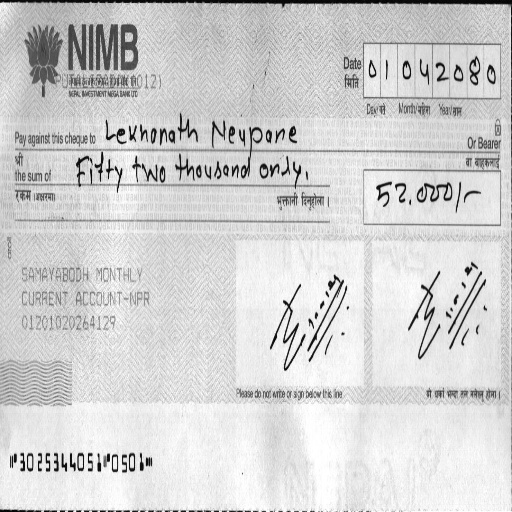 NIMB
NEPAL INVESTMENT MEGA BANK LTD
Date
मिति
01 04 2080
Day/गते Month/महिना Year/साल
Pay against this cheque to Lekhanath Neupane
Or Bearer
श्री
वा वाहकलाई
the sum of Fifty two thousand only.
रकम (अक्षरमा)
भुक्तानी दिनुहोला ।
52,000/-
SAMAYABODH MONTHLY
CURRENT ACCOUNT-NPR
01201020264129
Please do not write or sign below this line
⑈3025344051⑈0501⑈